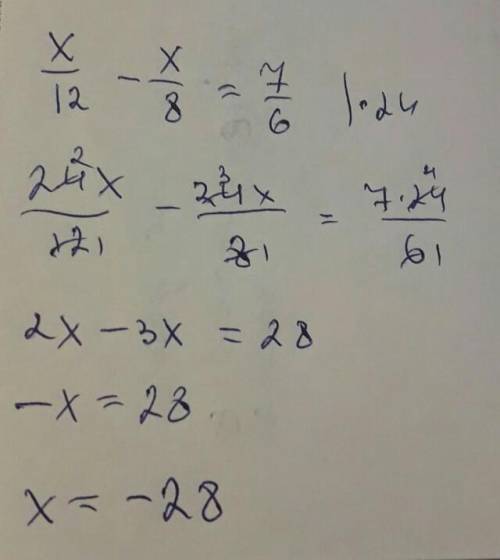 x/12 − x/8 = 7/6 |·24
24x/12 − 24x/8 = 7·24/6
2x − 3x = 28
−x = 28
x = −28